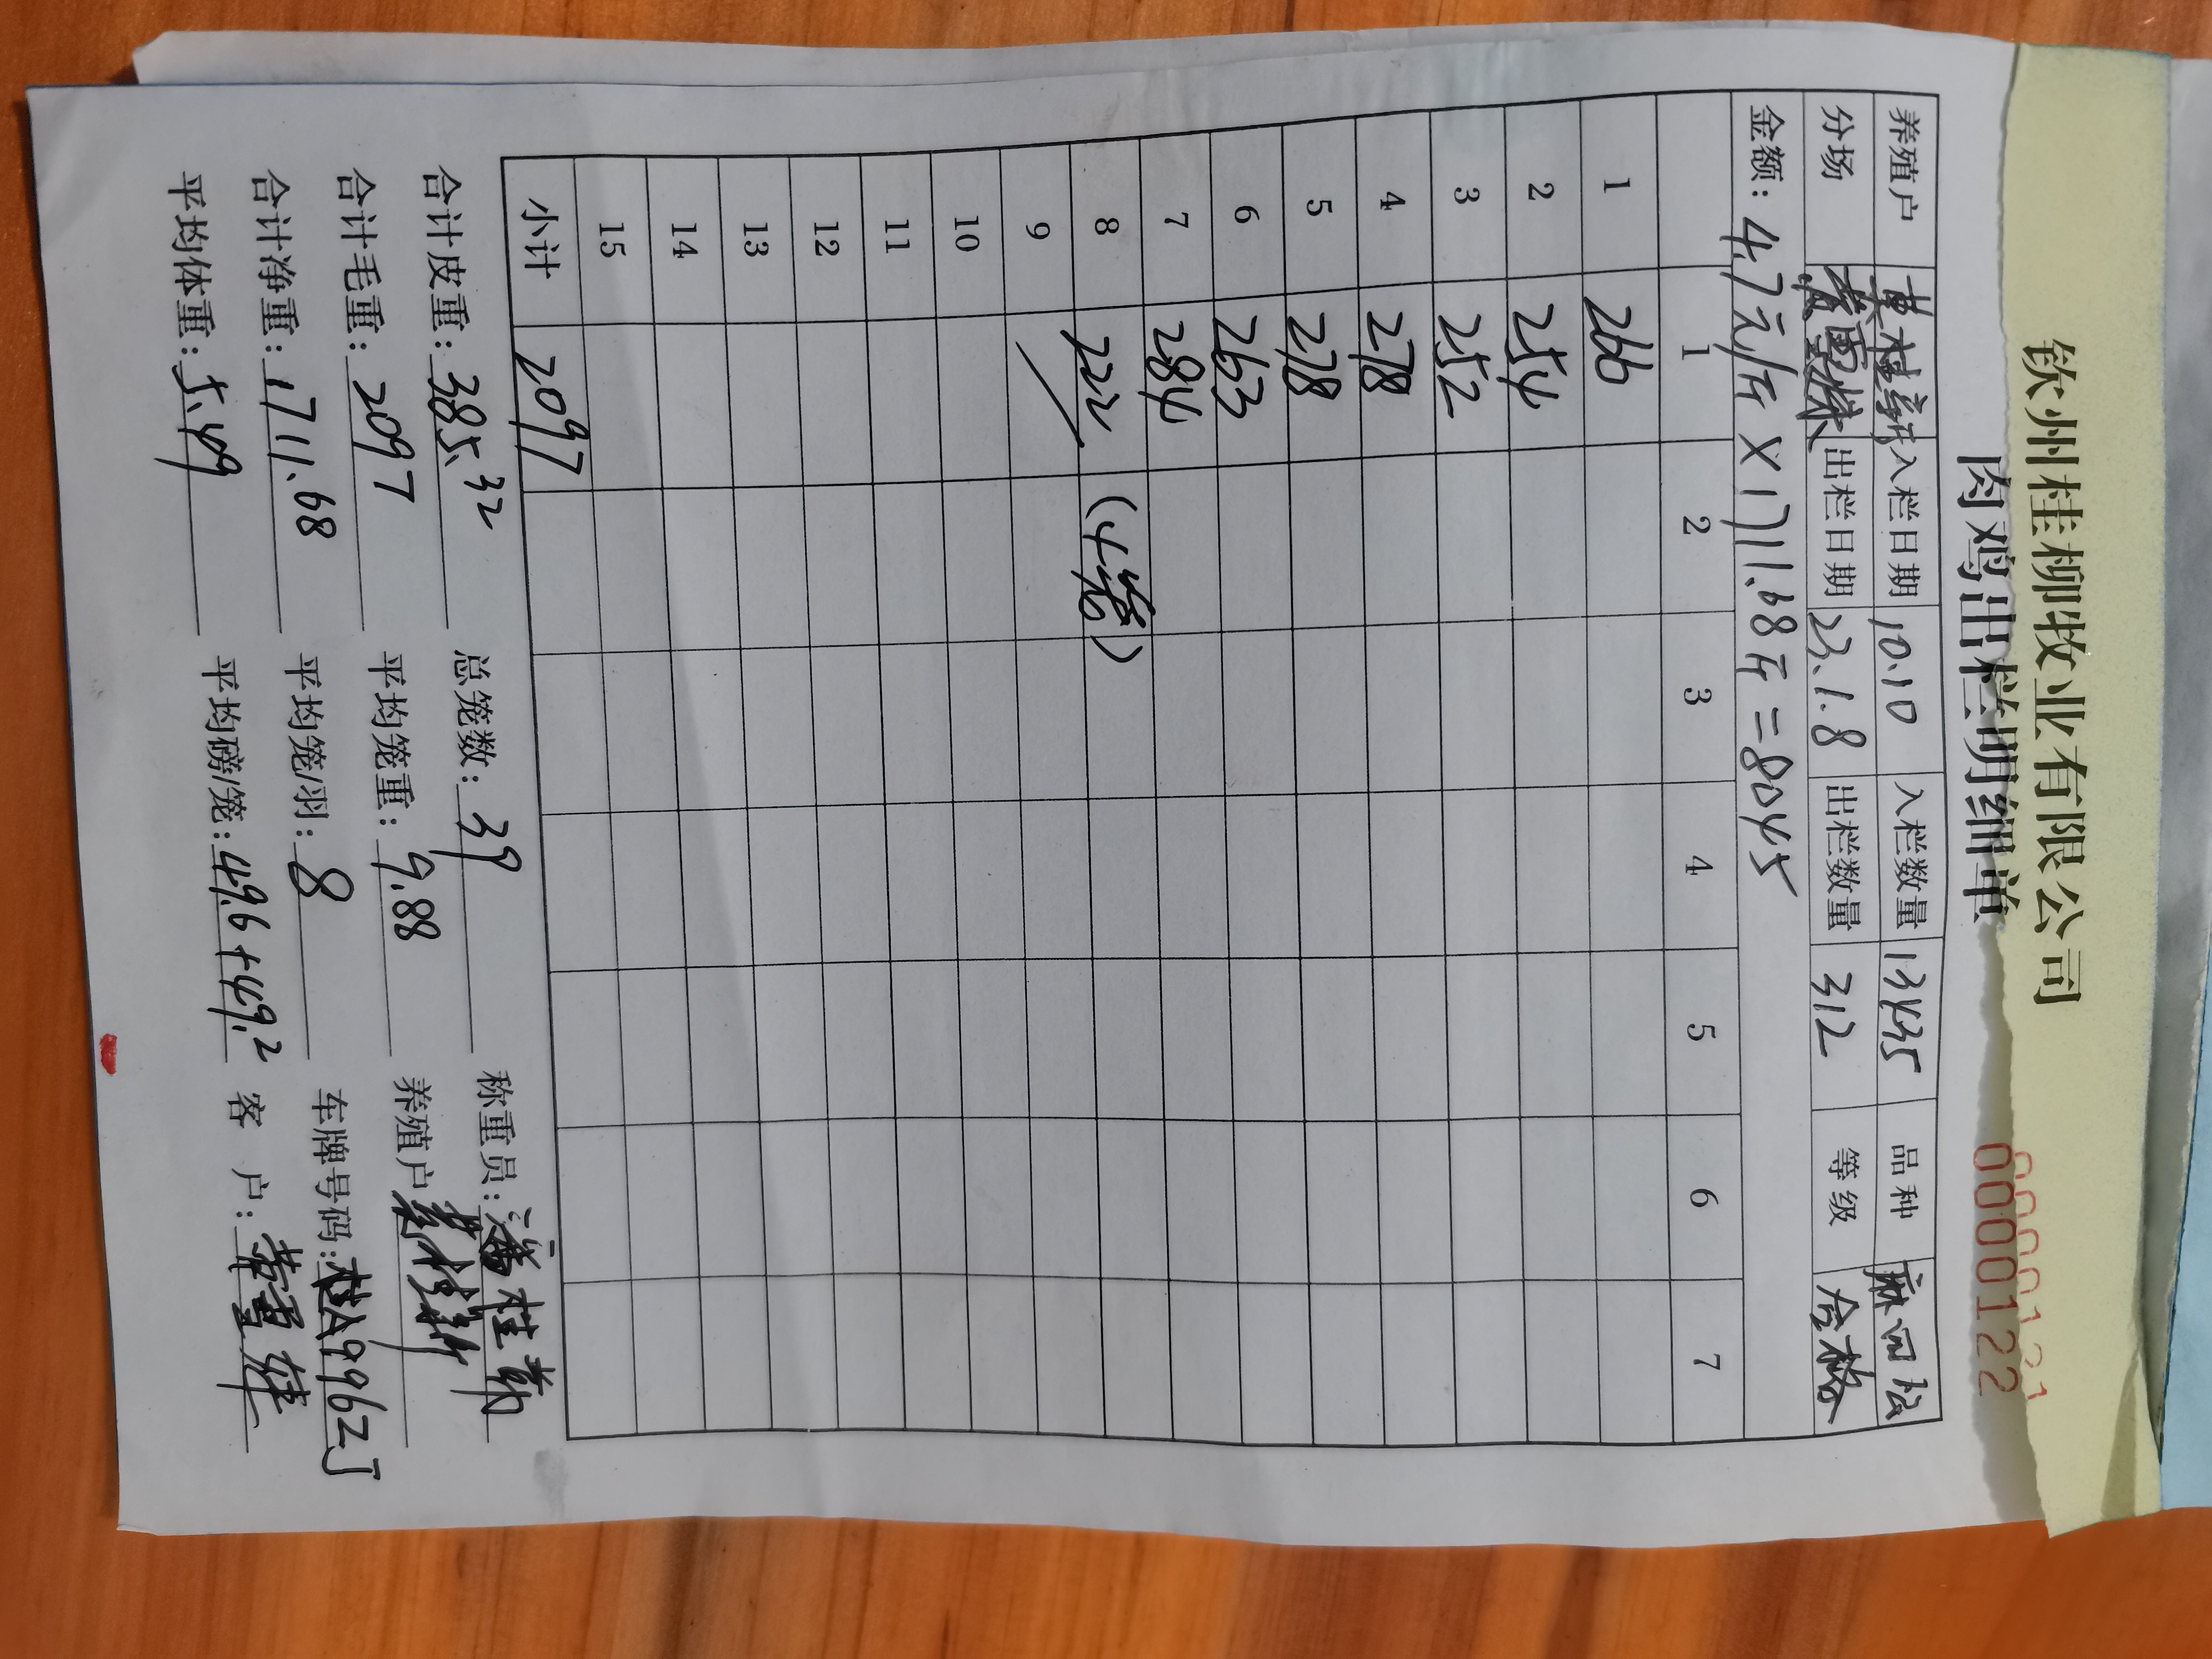 钦州桂柳牧业有限公司
肉鸡出栏明细单
0000121
0000122
养殖户 入栏日期 10.10 入栏数量 13435 品种 麻
分场 出栏日期 23.1.8 出栏数量 312 等级 合格
金额: 4.7元/斤×1711.68斤=8045
1 2 3 4 5 6 7
1 266
2 254
3 252
4 278
5 278
6 263
7 284
8 222 (4笼)
9
10
11
12
13
14
15
小计 2097
合计皮重: 385.32 总笼数: 39 称重员: 潘桂
合计毛重: 2097 平均笼重: 9.88 养殖户
合计净重: 1711.68 平均笼/羽: 8 车牌号码: 桂A9962J
平均体重: 5.49 平均磅/笼: 49.6+49.2 客 户: 黄雪